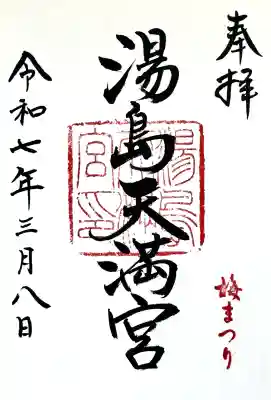 奉拝
梅まつり
湯島天満宮
令和七年三月八日